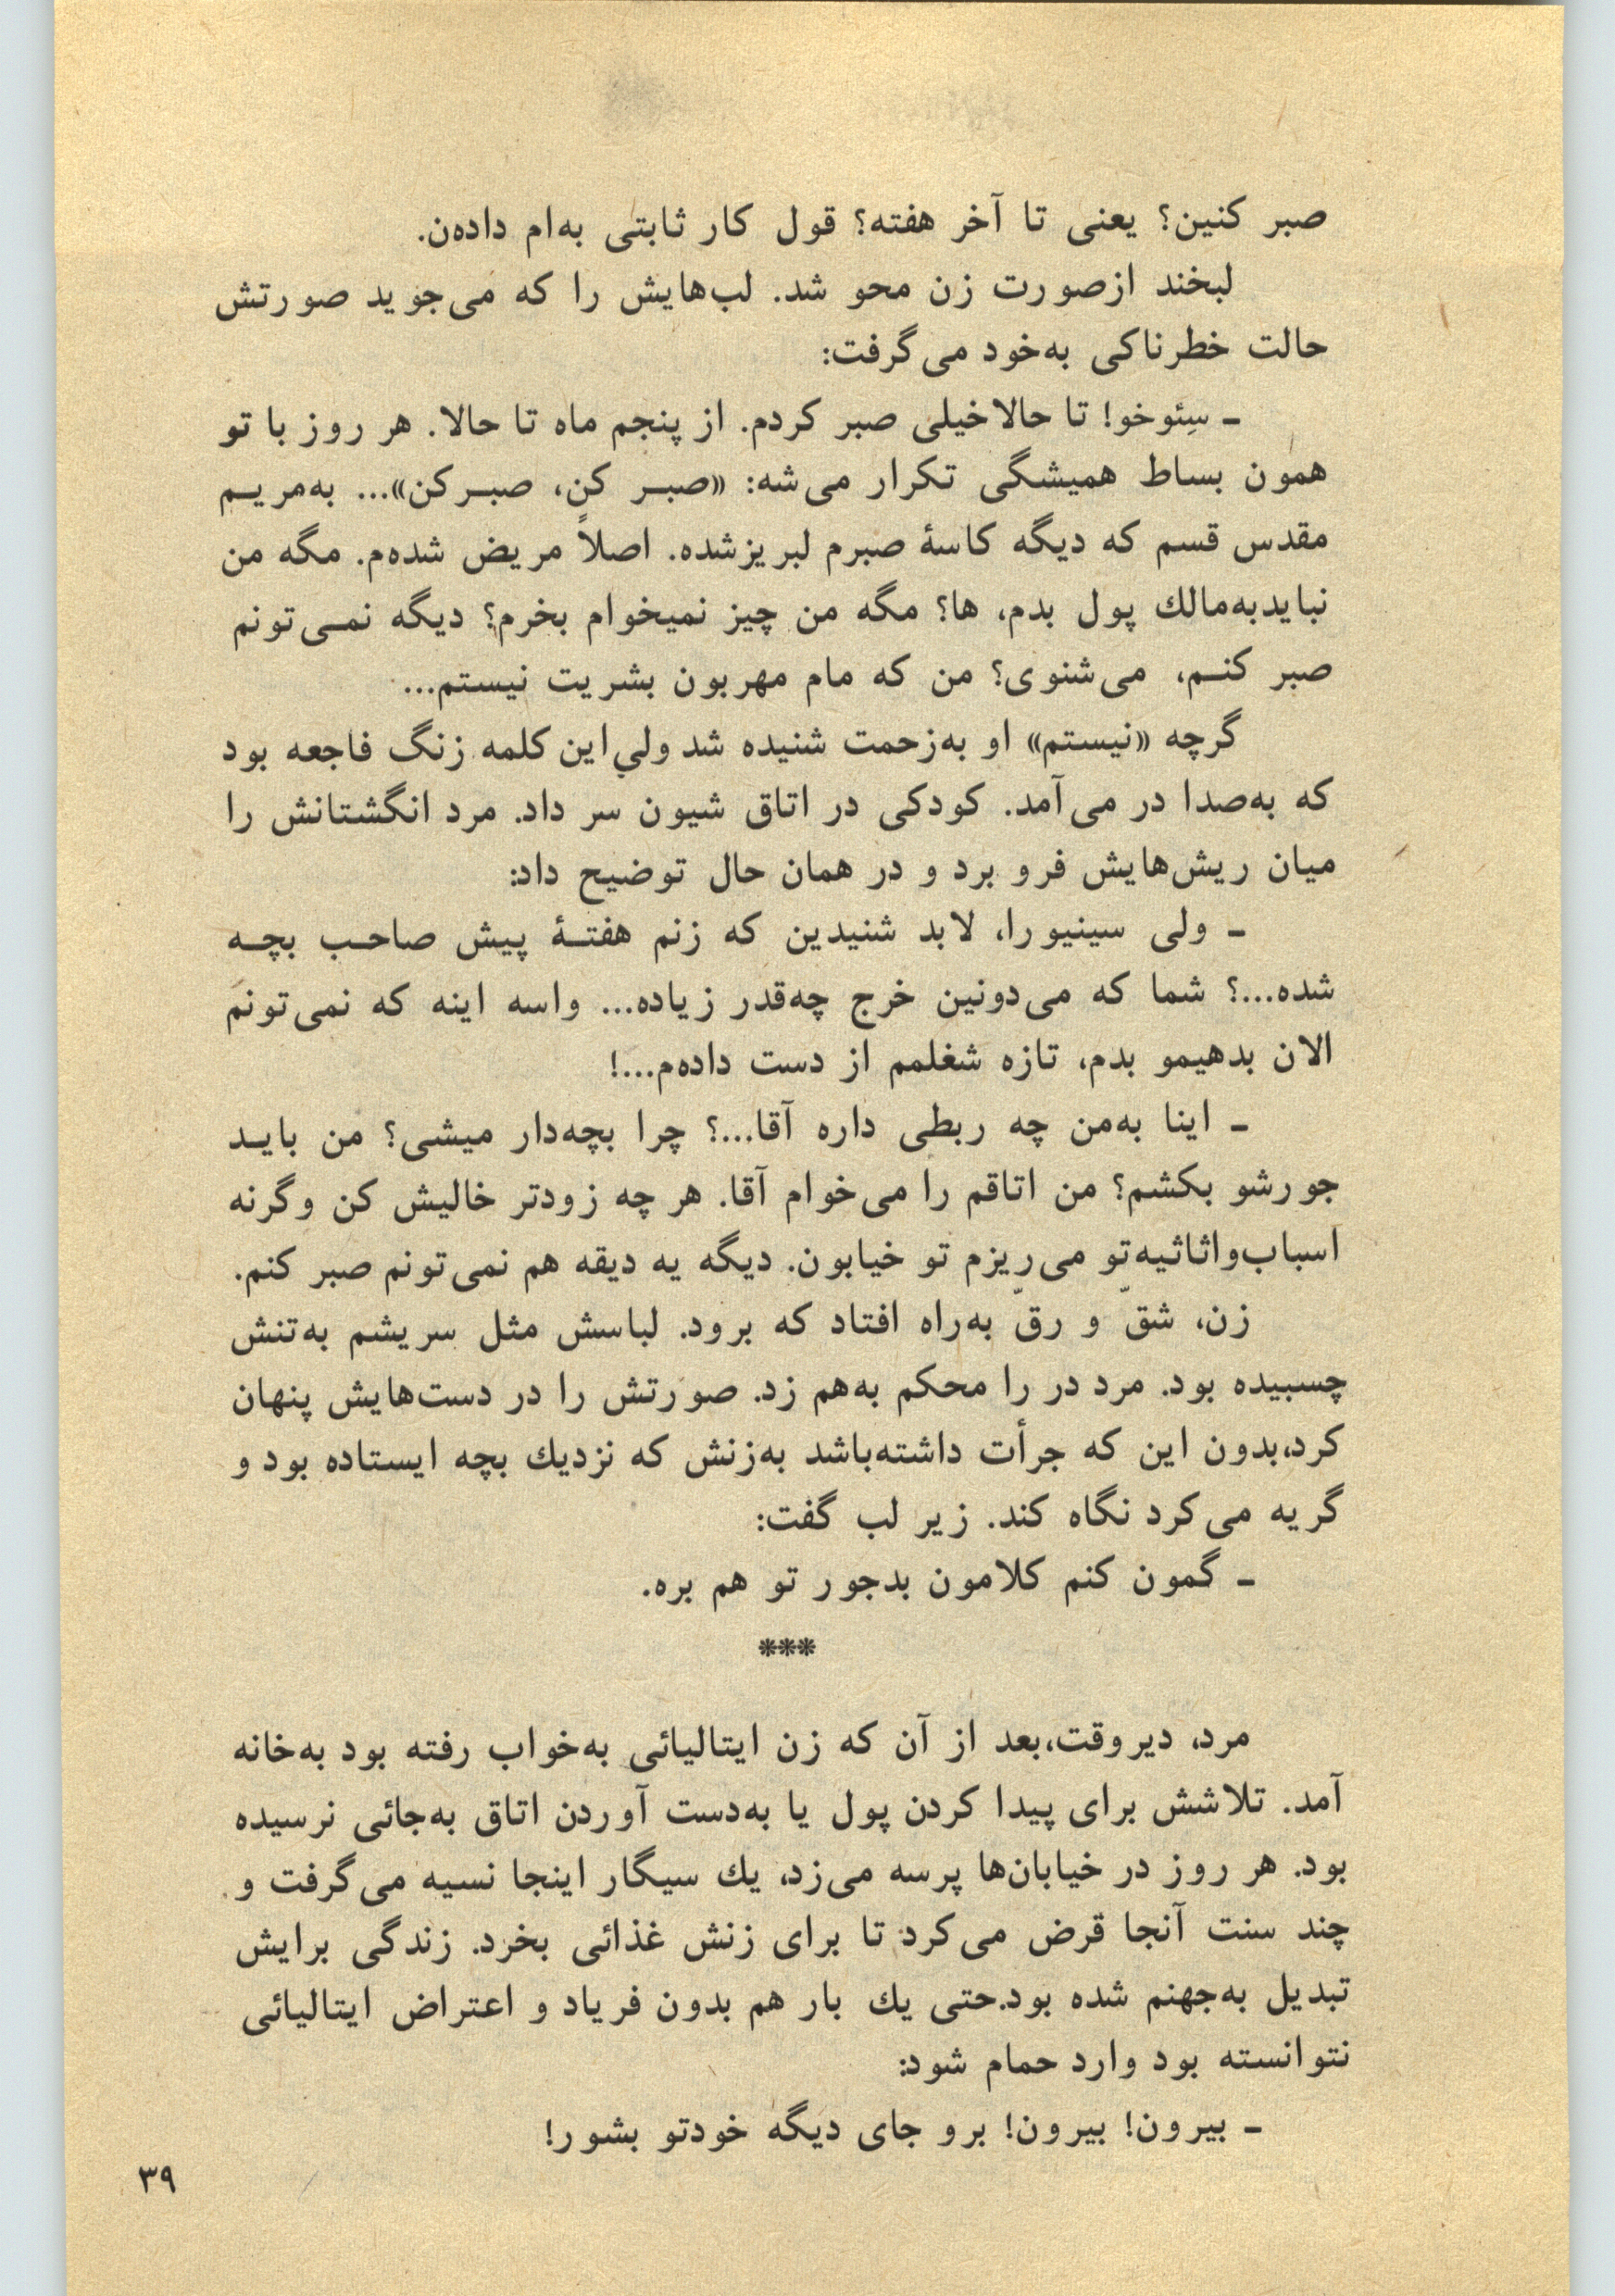 صبر کنین؟ یعنی تا آخر هفته؟ قول کار ثابتی به‌ام داده‌ن.
لبخند ازصورت زن محو شد. لب‌هایش را که می‌جوید صورتش
حالت خطرناکی به‌خود می‌گرفت:
ـ سِئوخو! تا حالاخیلی صبر کردم. از پنجم ماه تا حالا. هر روز با تو
همون بساط همیشگی تکرار می‌شه: «صبـر کن، صبـرکن»... به‌مریـم
مقدس قسم که دیگه کاسهٔ صبرم لبریزشده. اصلاً مریض شده‌م. مگه من
نبایدبه‌مالك پول بدم، ها؟ مگه من چیز نمیخوام بخرم؟ دیگه نمـی‌تونم
صبر کنـم، می‌شنوی؟ من که مام مهربون بشریت نیستم...
گرچه «نیستم» او به‌زحمت شنیده شد ولی‌این کلمه زنگ فاجعه بود
که به‌صدا در می‌آمد. کودکی در اتاق شیون سر داد. مرد انگشتانش را
میان ریش‌هایش فرو برد و در همان حال توضیح داد:
ـ ولی سینیورا، لابد شنیدین که زنم هفتـهٔ پیش صاحـب بچـه
شده...؟ شما که می‌دونین خرج چه‌قدر زیاده... واسه اینه که نمی‌تونم
الان بدهیمو بدم، تازه شغلمم از دست داده‌م...!
ـ اینا به‌من چه ربطی داره آقا...؟ چرا بچه‌دار میشی؟ من بایـد
جورشو بکشم؟ من اتاقم را می‌خوام آقا. هر چه زودتر خالیش کن وگرنه
اسباب‌واثاثیه‌تو می‌ریزم تو خیابون. دیگه یه دیقه هم نمی‌تونم صبر کنم.
زن، شقّ و رقّ به‌راه افتاد که برود. لباسش مثل سریشم به‌تنش
چسبیده بود. مرد در را محکم به‌هم زد. صورتش را در دست‌هایش پنهان
کرد،بدون این که جرأت داشته‌باشد به‌زنش که نزدیك بچه ایستاده بود و
گریه می‌کرد نگاه کند. زیر لب گفت:
ـ گمون کنم کلامون بدجور تو هم بره.
***
مرد، دیروقت،بعد از آن که زن ایتالیائی به‌خواب رفته بود به‌خانه
آمد. تلاشش برای پیدا کردن پول یا به‌دست آوردن اتاق به‌جائی نرسیده
بود. هر روز در خیابان‌ها پرسه می‌زد، یك سیگار اینجا نسیه می‌گرفت و
چند سنت آنجا قرض می‌کرد تا برای زنش غذائی بخرد. زندگی برایش
تبدیل به‌جهنم شده بود.حتی یك بار هم بدون فریاد و اعتراض ایتالیائی
نتوانسته بود وارد حمام شود:
ـ بیرون! بیرون! برو جای دیگه خودتو بشور!
۳۹